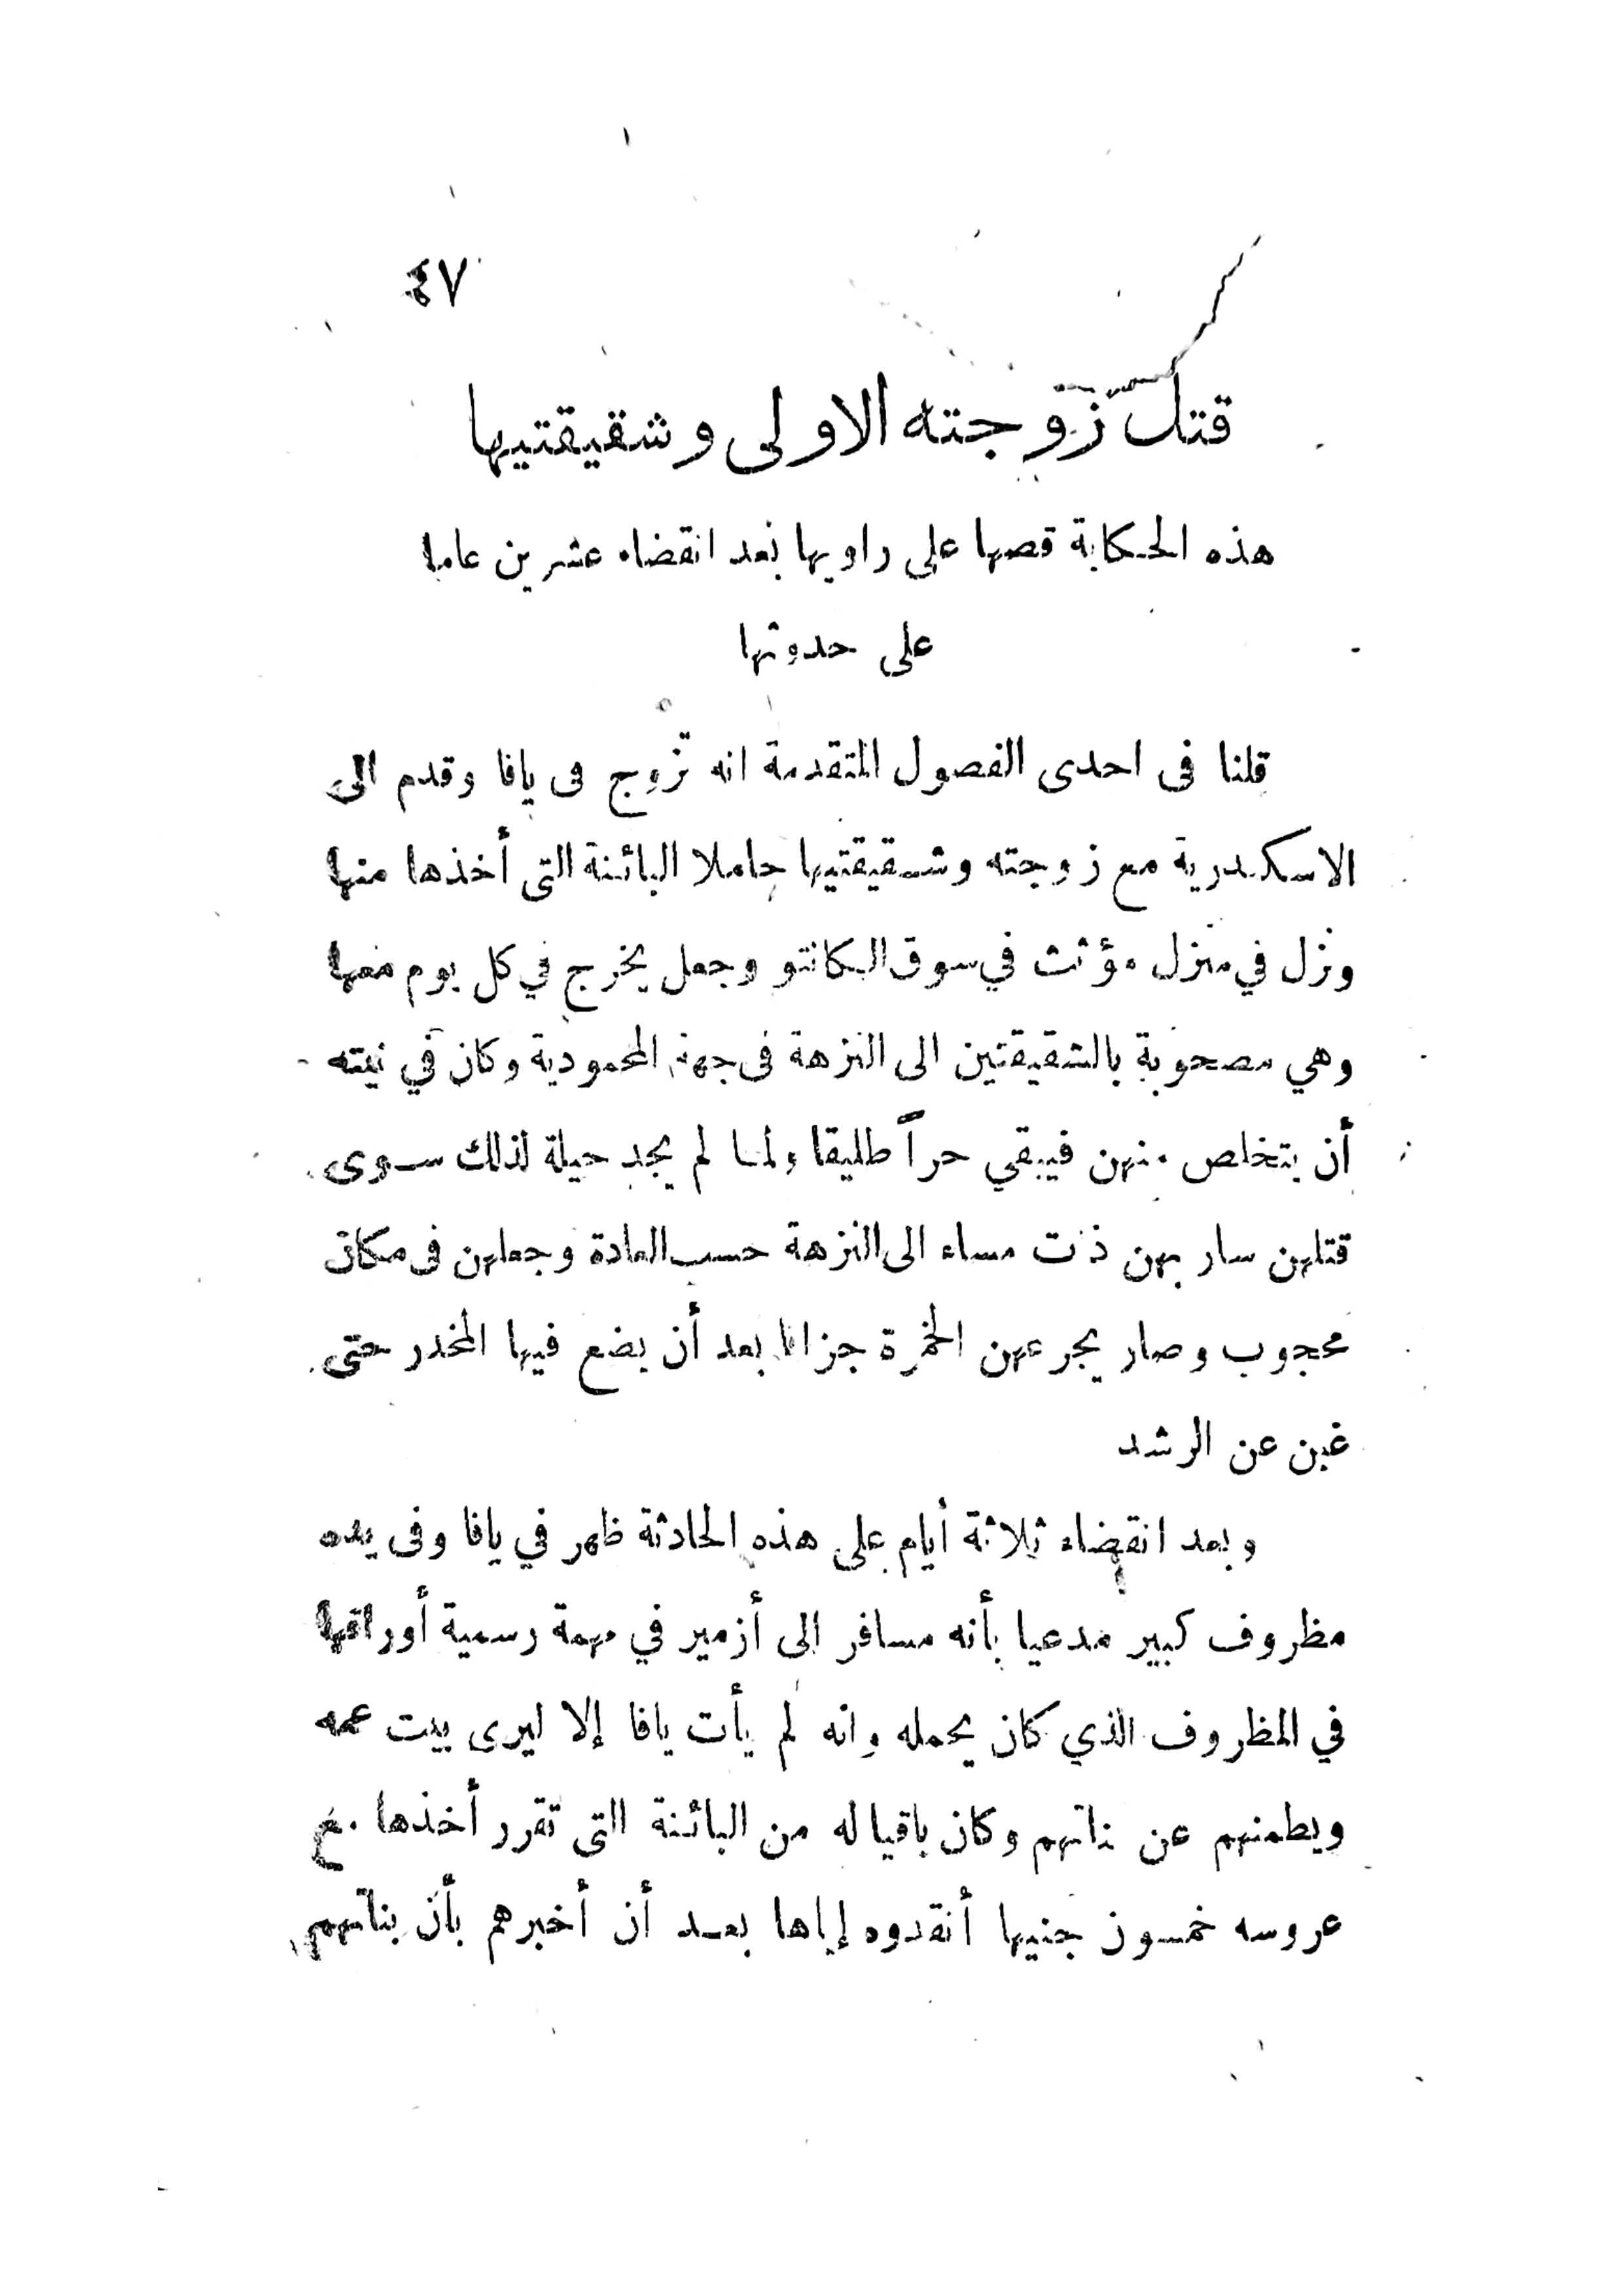 ٤٧
قتل زوجته الاولى وشقيقتيها
هذه الحكاية قصها على راويها بعد انقضاء عشرين عاما
على حدوثها
قلنا فى احدى الفصول المتقدمة انه تزوج فى يافا وقدم الى
الاسكندرية مع زوجته وشقيقتيها حاملا البائنة التى أخذها منها
ونزل في منزل مؤثث في سوق الكانتو وجعل يخرج في كل يوم معها
وهي مصحوبة بالشقيقتين الى النزهة فى جهة المحمودية وكان في نيته
أن يتخلص منهن فيبقي حراً طليقا ولما لم يجد حيلة لذلك سوى
قتلهن سار بهن ذات مساء الى النزهة حسب العادة وجعلهن فى مكان
محجوب وصار يجرعهن الخمرة جزافا بعد أن يضع فيها المخدر حتى
غبن عن الرشد
وبعد انقضاء ثلاثة أيام على هذه الحادثة ظهر في يافا وفى يده
مظروف كبير مدعيا بأنه مسافر الى أزمير في مهمة رسمية أوراقها
في المظروف الذي كان يحمله وانه لم يأت يافا إلا ليرى بيت عمه
ويطمنهم عن بناتهم وكان باقيا له من البائنة التى تقرر أخذها مع
عروسه خمسون جنيها أنقدوه إياها بعد أن أخبرهم بأن بناتهم